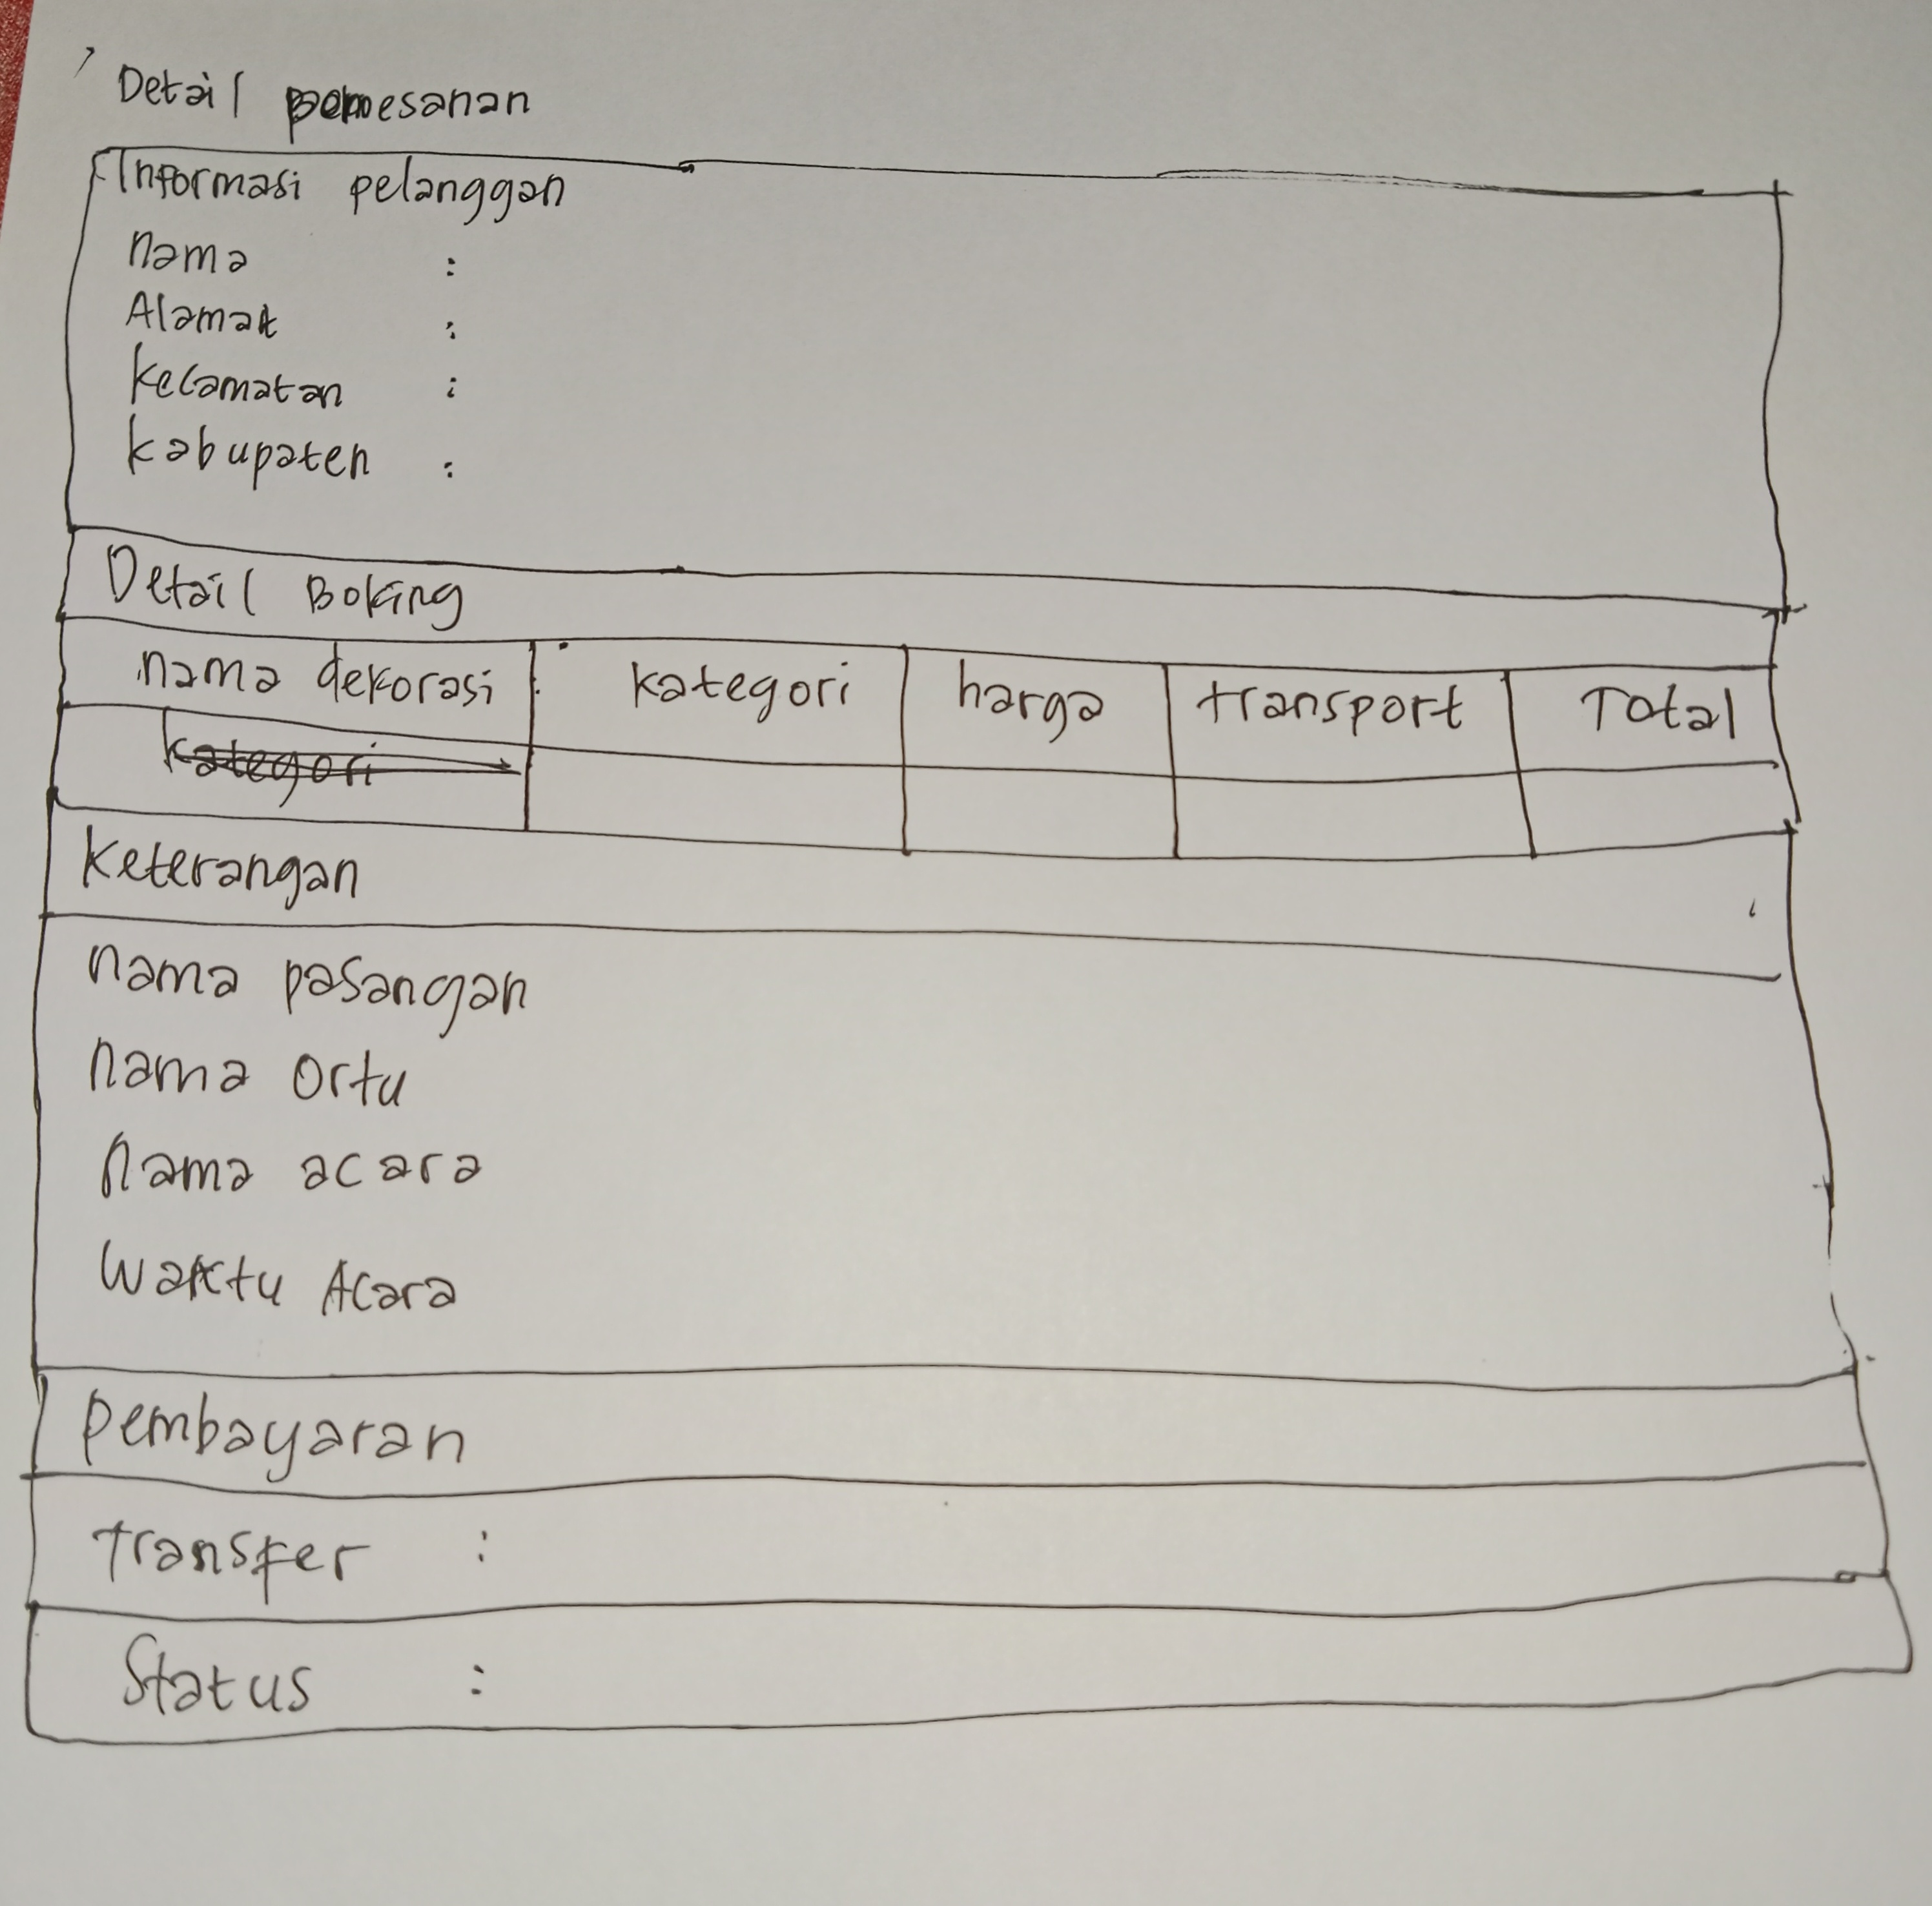 Detail pemesanan
Informasi pelanggan
nama :
Alamat :
Kecamatan :
kabupaten :
Detail Boking
nama dekorasi kategori harga transport Total
kategori
Keterangan
nama pasangan
nama ortu
nama acara
waktu Acara
pembayaran
transfer :
Status :